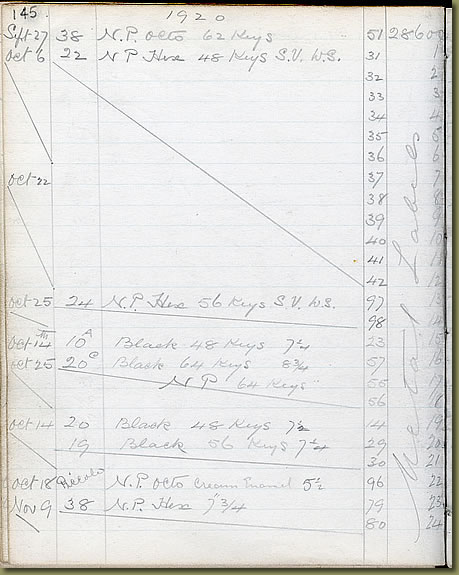 145. 1920
Sept 27 38 N.P. Octo 62 Keys 51 28600
Oct 6 22 N P Hex 48 Keys S.V. W.S. 31 1
32 2
33 3
34 4
35 5
36 6
Oct 22 37 7
38 8
39 9
40 10
41 11
42 12
Oct 25 24 N.P. Hex 56 Keys S.V. W.S. 97 13
98 14
Oct 14th 10A Black 48 Keys 7 1/4 23 15
Oct 25 20C Black 64 Keys 8 3/4 57 16
N P 64 Keys " 55 17
56 18
Oct 14 20 Black 48 Keys 7 1/2 14 19
19 Black 56 Keys 7 1/4 29 20
30 21
Oct 18 Piccolo N.P. Octo Cream Enamel 5 1/2 96 22
Nov 9 38 N.P. Hex 7" 3/4 79 23
80 24
Metal Labels